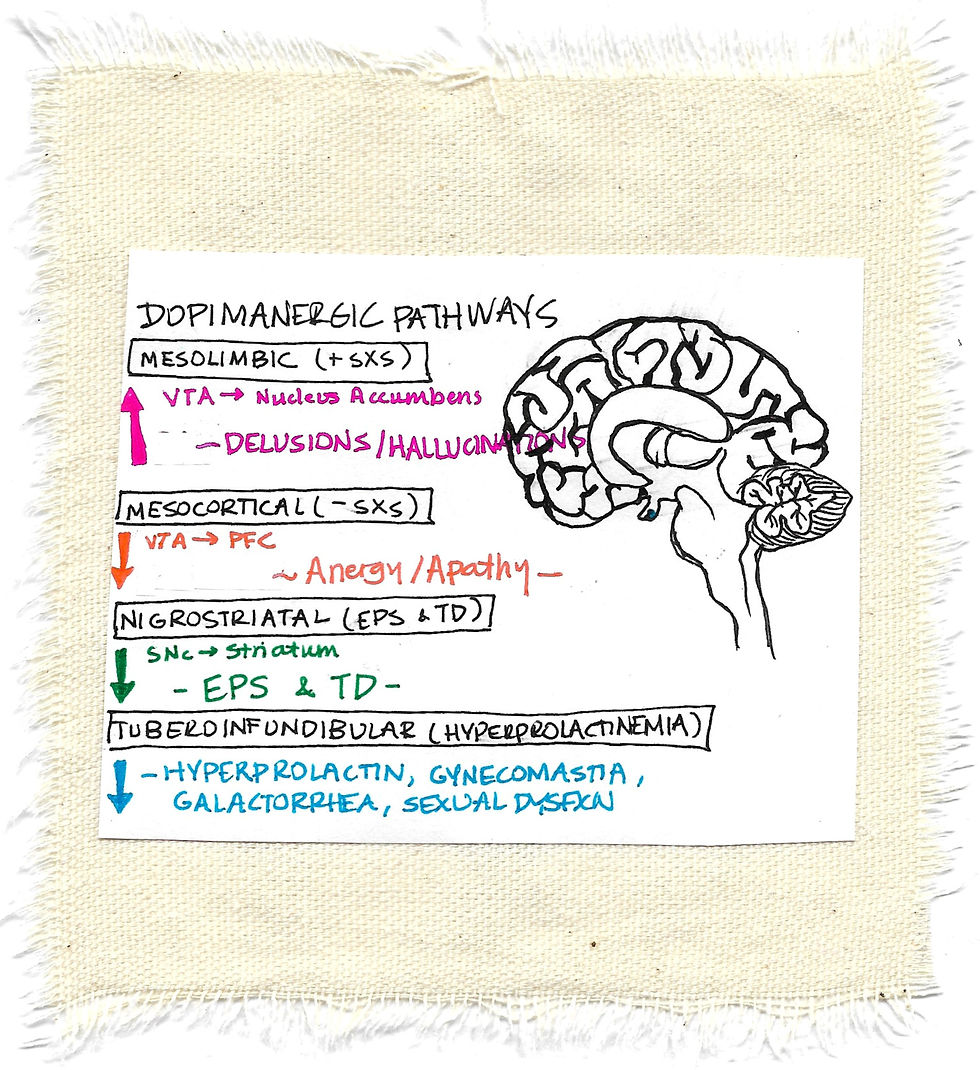 DOPIMANERGIC PATHWAYS
MESOLIMBIC (+ SXS)
VTA → Nucleus Accumbens
- DELUSIONS/HALLUCINATIONS
MESOCORTICAL (- SXS)
VTA → PFC
~ Anergy/Apathy -
NIGROSTRIATAL (EPS & TD)
SNc → Striatum
- EPS & TD -
TUBEROINFUNDIBULAR (HYPERPROLACTINEMIA)
- HYPERPROLACTIN, GYNECOMASTIA,
GALACTORRHEA, SEXUAL DYSFXN